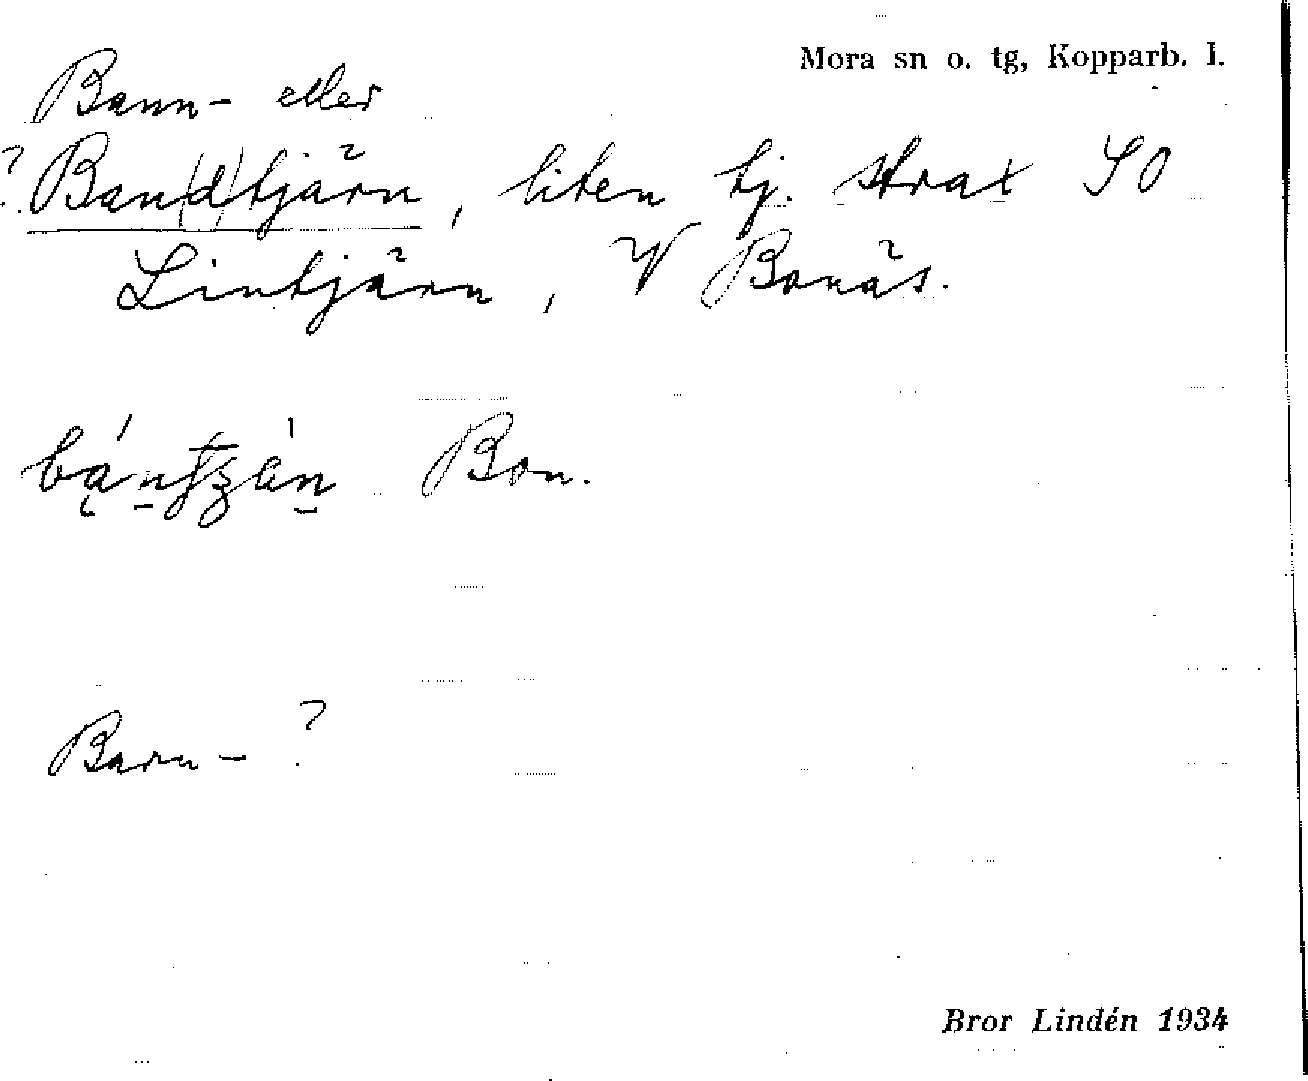 Mora sn o. tg, Kopparb. l.
Bann- eller
? Ban(d)tjärn, liten tj. strax SO
Lintjärn, V Bonäs.
Bon.
Barn- ?
Bror Lindén 1934